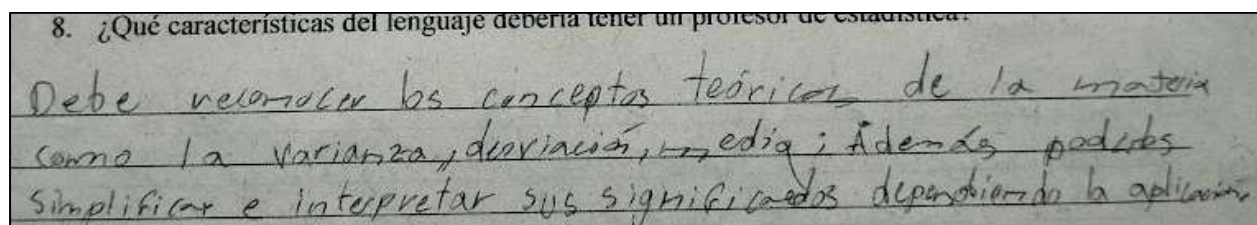 8. ¿Qué características del lenguaje debería tener un profesor de estadística?
Debe reconocer los conceptos teóricos de la materia
como la varianza, desviación, media; Además poderlos
simplificar e interpretar sus significados dependiendo la aplicación,